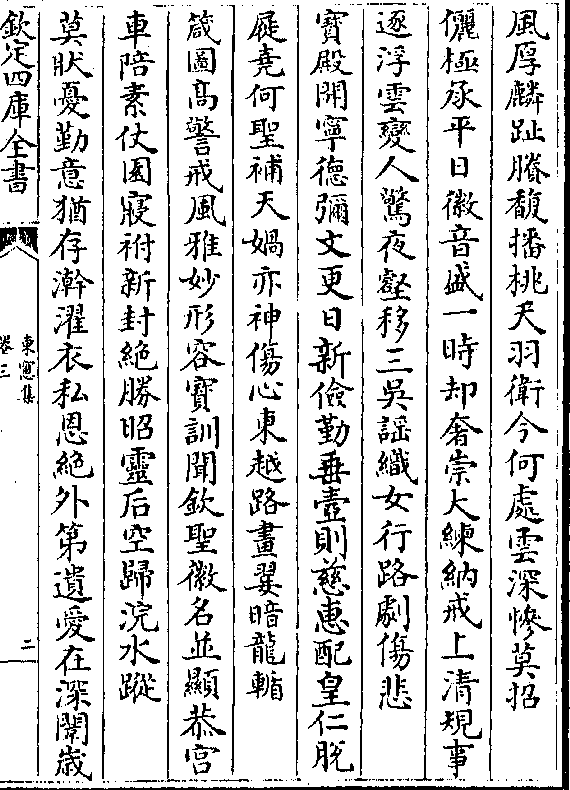 風厚麟趾賸馥播桃夭羽衛今何處雲深慘莫招
儷極承平日徽音盛一時却奢崇大練納戒上清規事
逐浮雲變人驚夜壑移三吳謡織女行路劇傷悲
寳殿開寧德彌文更日新儉勤垂壼則慈惠配皇仁脱
屣堯何聖補天媧亦神傷心東越路畫翣暗龍輴
箴圖髙警戒風雅妙形容寳訓聞欽聖徽名並顯恭宫
車陪素仗園寢祔新封絶勝昭靈后空歸浣水蹤
莫狀憂勤意猶存澣濯衣私恩絶外第遺愛在深闈歲
欽定四庫全書
東窻集
卷三
二